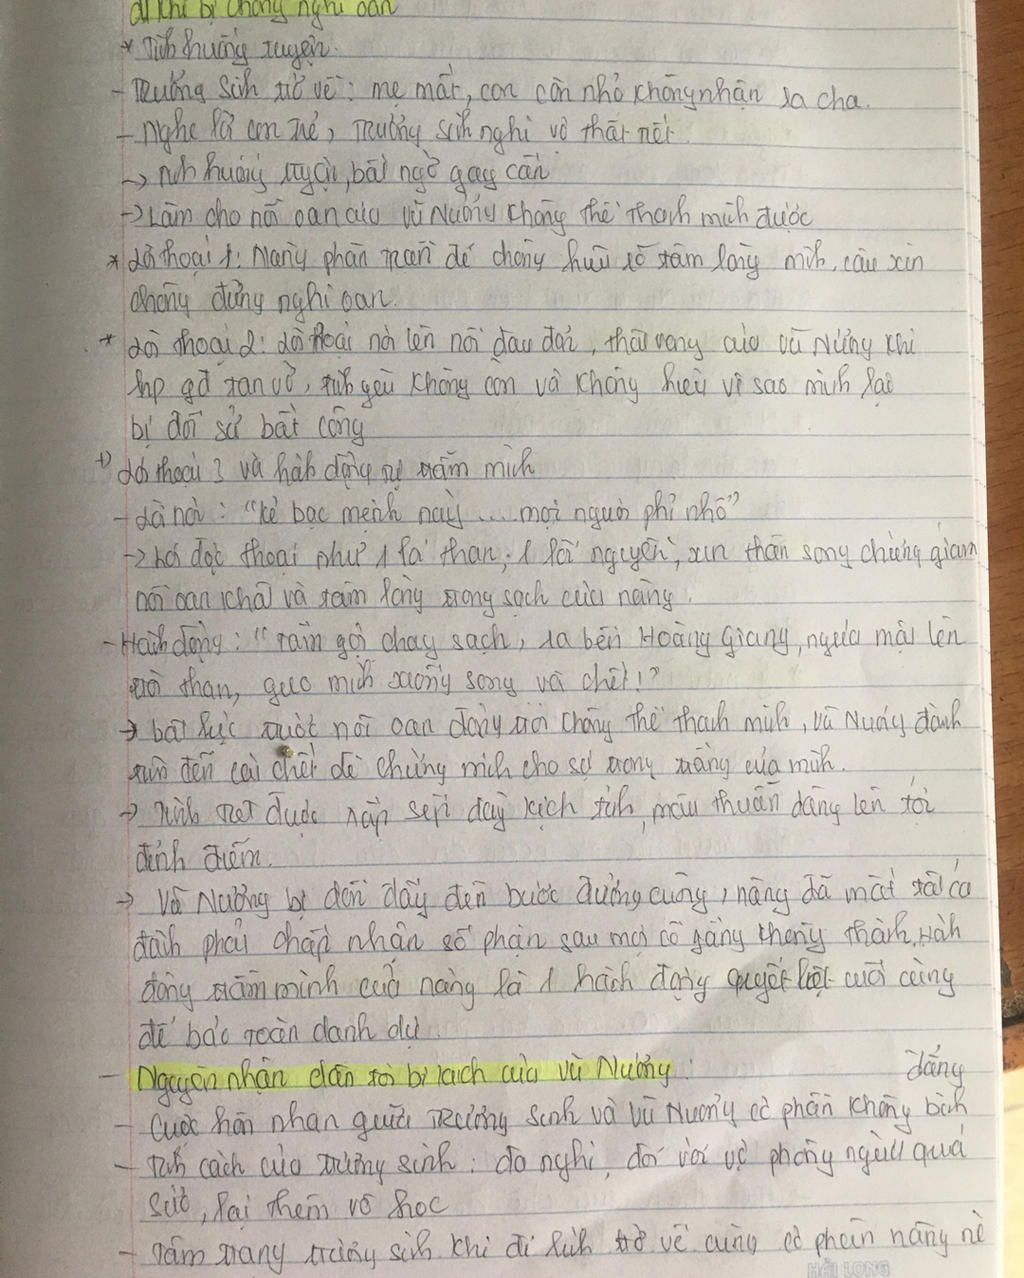 d) Khi bị chồng nghi oan
* Tình huống truyện.
- Trương Sinh trở về: mẹ mất, con còn nhỏ không nhận ra cha.
- Nghe lời con trẻ, Trương Sinh nghi vợ thất nết.
→ Tình huống truyện, bất ngờ gay cấn
→ Làm cho nỗi oan của Vũ Nương không thể thanh minh được
* Lời thoại 1: Nàng phân trần để chồng hiểu rõ tấm lòng mình, cầu xin
chồng đừng nghi oan.
* Lời thoại 2: Lời thoại nói lên nỗi đau đớn, thất vọng của Vũ Nương khi
hp gđ tan vỡ, tình yêu không còn và không hiểu vì sao mình lại
bị đối sử bất công
+) Lời thoại 3 và hành động tự trẫm mình
- Lời nói: "kẻ bạc mệnh này ... mọi người phỉ nhổ"
→ Lời độc thoại như 1 lời than, 1 lời nguyền, xin thần sông chứng giám
nỗi oan khổ và tấm lòng trong sạch của nàng.
- Hành động: "tắm gội chay sạch, ra bến Hoàng Giang, ngửa mặt lên
trời than, gieo mình xuống sông và chết!"
→ bất lực trước nỗi oan động trời không thể thanh minh, Vũ Nương đành
tìm đến cái chết để chứng minh cho sự trong trắng của mình.
→ Tình tiết được sắp sếp đầy kịch tính, mâu thuẫn dâng lên tới
đỉnh điểm.
→ Vũ Nương bị dồn đẩy đến bước đường cùng, nàng đã mất tất cả
đành phải chấp nhận số phận sau mọi cố gắng không thành. Hành
động trẫm mình của nàng là 1 hành động quyết liệt cuối cùng
để bảo toàn danh dự.
- Nguyên nhân dẫn tới bi kịch của Vũ Nương:
đẳng
- Cuộc hôn nhân giữa Trương Sinh và Vũ Nương có phần không bình
- Tính cách của Trương Sinh: đa nghi, đối với vợ phòng ngừa quá
sức, lại thêm vô học
- Tâm trạng Trương Sinh khi đi lính trở về cũng có phần nặng nề
HẢI LONG